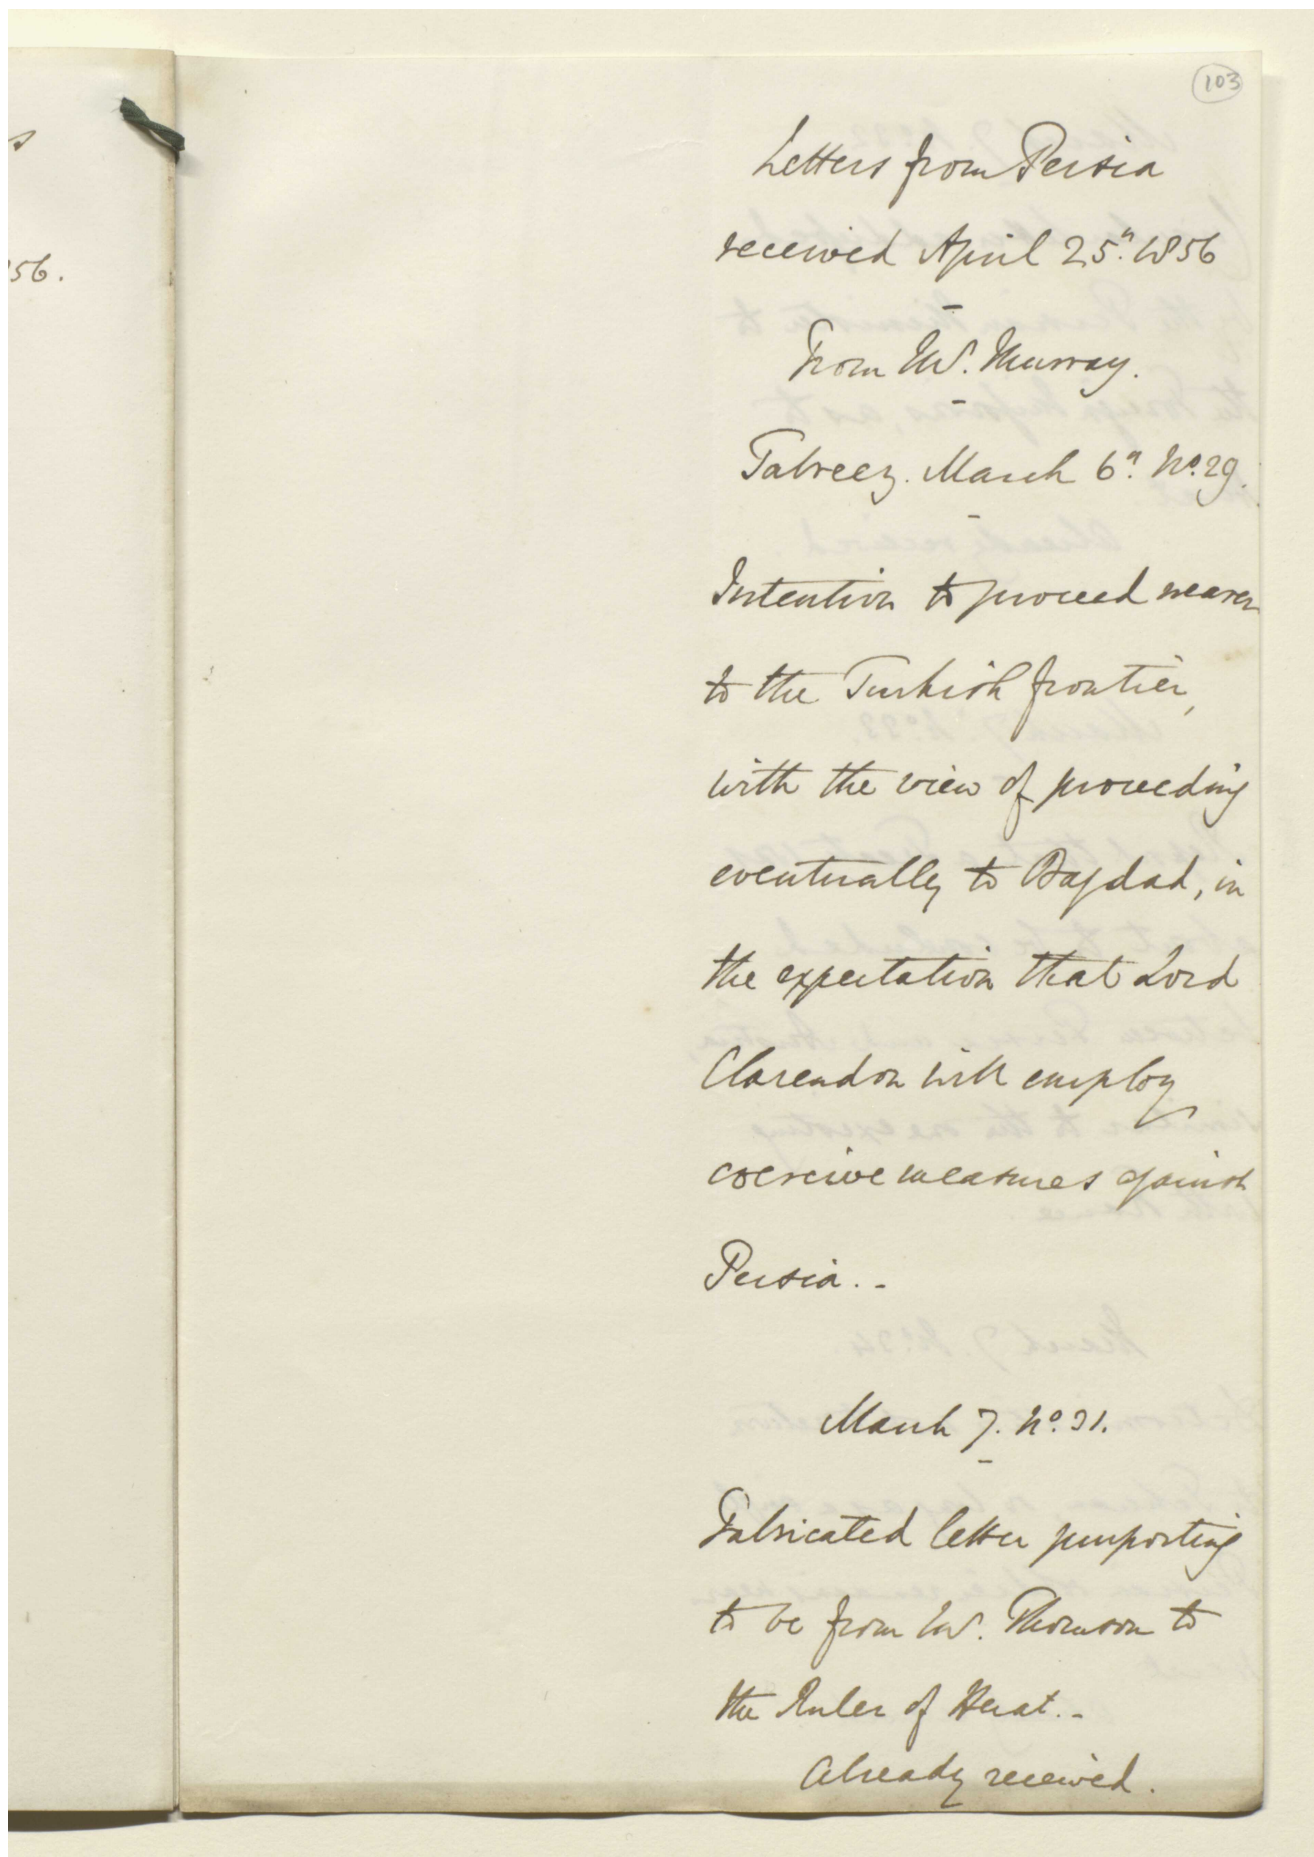 s
56.
103
Letters from Persia
received April 25th 1856
From Mr. Murray.
Tabreez. March 6th No. 29.
Intention to proceed nearer
to the Turkish frontier,
with the view of proceeding
eventually to Bagdad, in
the expectation that Lord
Clarendon will employ
coercive measures against
Persia. -
March 7. No. 31.
Fabricated letter purporting
to be from Mr. Thomson to
the Ruler of Herat. -
Already received.